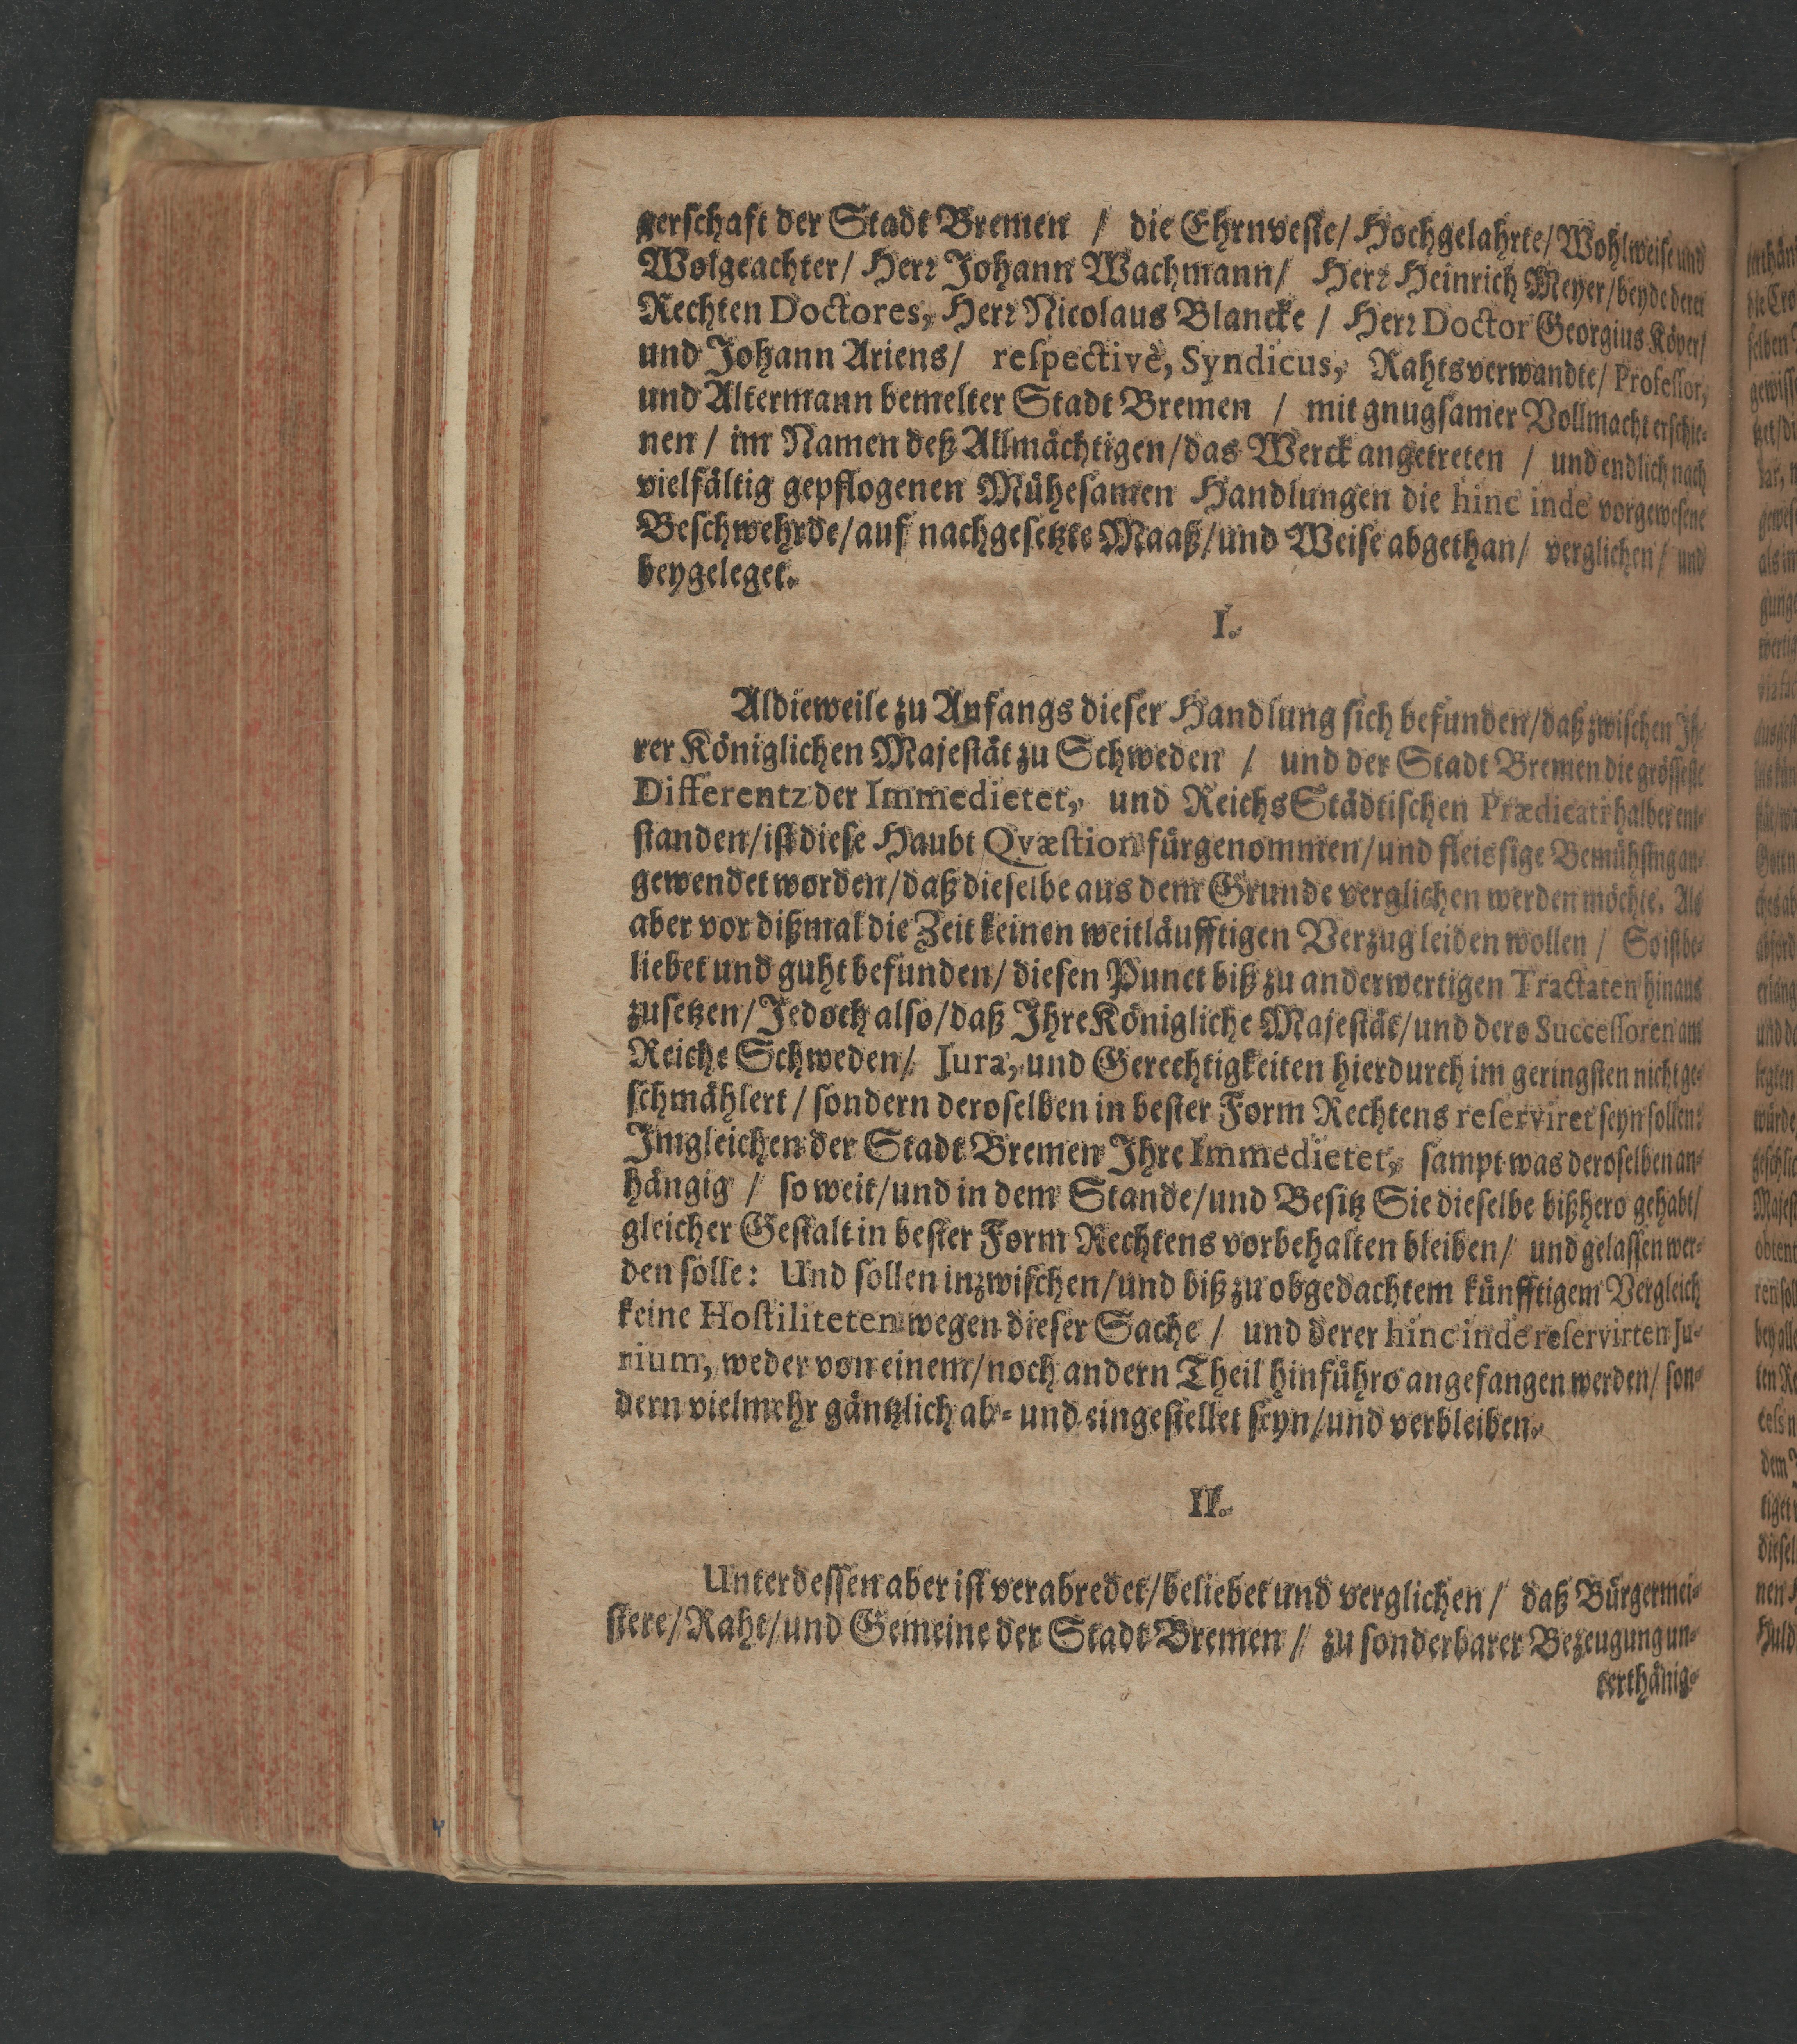 gerschaft der Stadt Bremen / die Ehrnveste/ Hochgelahrte/ Wohlweise und
Wolgeachter/ Herr Johann Wachmann/ Herr Heinrich Meyer/ beyde derer
Rechten Doctores, Herr Nicolaus Blancke / Herr Doctor Georgius Köper/
und Johann Ariens/ respectivè, Syndicus, Rahtsverwandte/ Professor,
und Altermann bemelter Stadt Bremen / mit gnugsamer Vollmacht erschie-
nen / im Namen deß Allmächtigen/das Werck angetreten / und endlich nach
vielfältig gepflogenen Mühesamen Handlungen die hinc inde vorgewesene
Beschwehrde/auf nachgesetzte Maaß/und Weise abgethan/ verglichen/ und
beygeleget.
I.
Aldieweile zu Anfangs dieser Handlung sich befunden/daß zwischen Ih-
rer Königlichen Majestät zu Schweden / und der Stadt Bremen die grösseste
Differentz der Immedietet, und ReichsStädtischen Prædicats halber ent-
standen/ist diese Haubt Qvæstion fürgenommen/und fleissige Bemühung an-
gewendet worden/daß dieselbe aus dem Grunde verglichen werden möchte. Als
aber vor dißmal die Zeit keinen weitläufftigen Verzug leiden wollen / So ist be-
liebet und guht befunden/ diesen Punct biß zu anderwertigen Tractaten hinaus
zusetzen/ Jedoch also/daß Ihre Königliche Majestät/und dero Successoren am
Reiche Schweden/ Jura, und Gerechtigkeiten hierdurch im geringsten nicht ge-
schmählert / sondern deroselben in bester Form Rechtens reserviret seyn sollen:
Imgleichen der Stadt Bremen Ihre Immedietet, sampt was deroselben an-
hängig / so weit/und in dem Stande/und Besitz Sie dieselbe bißhero gehabt/
gleicher Gestalt in bester Form Rechtens vorbehalten bleiben/ und gelassen wer-
den solle: Und sollen inzwischen/und biß zu obgedachtem künfftigem Vergleich
keine Hostiliteten wegen dieser Sache / und derer hinc inde reservirten Ju-
rium, weder von einem/noch andern Theil hinführo angefangen werden/ son-
dern vielmehr gäntzlich ab- und eingestellet seyn/und verbleiben.
II.
Unterdessen aber ist verabredet/beliebet und verglichen / daß Bürgermei-
stere/Raht/und Gemeine der Stadt Bremen / zu sonderbarer Bezeugung un-
terthänig-